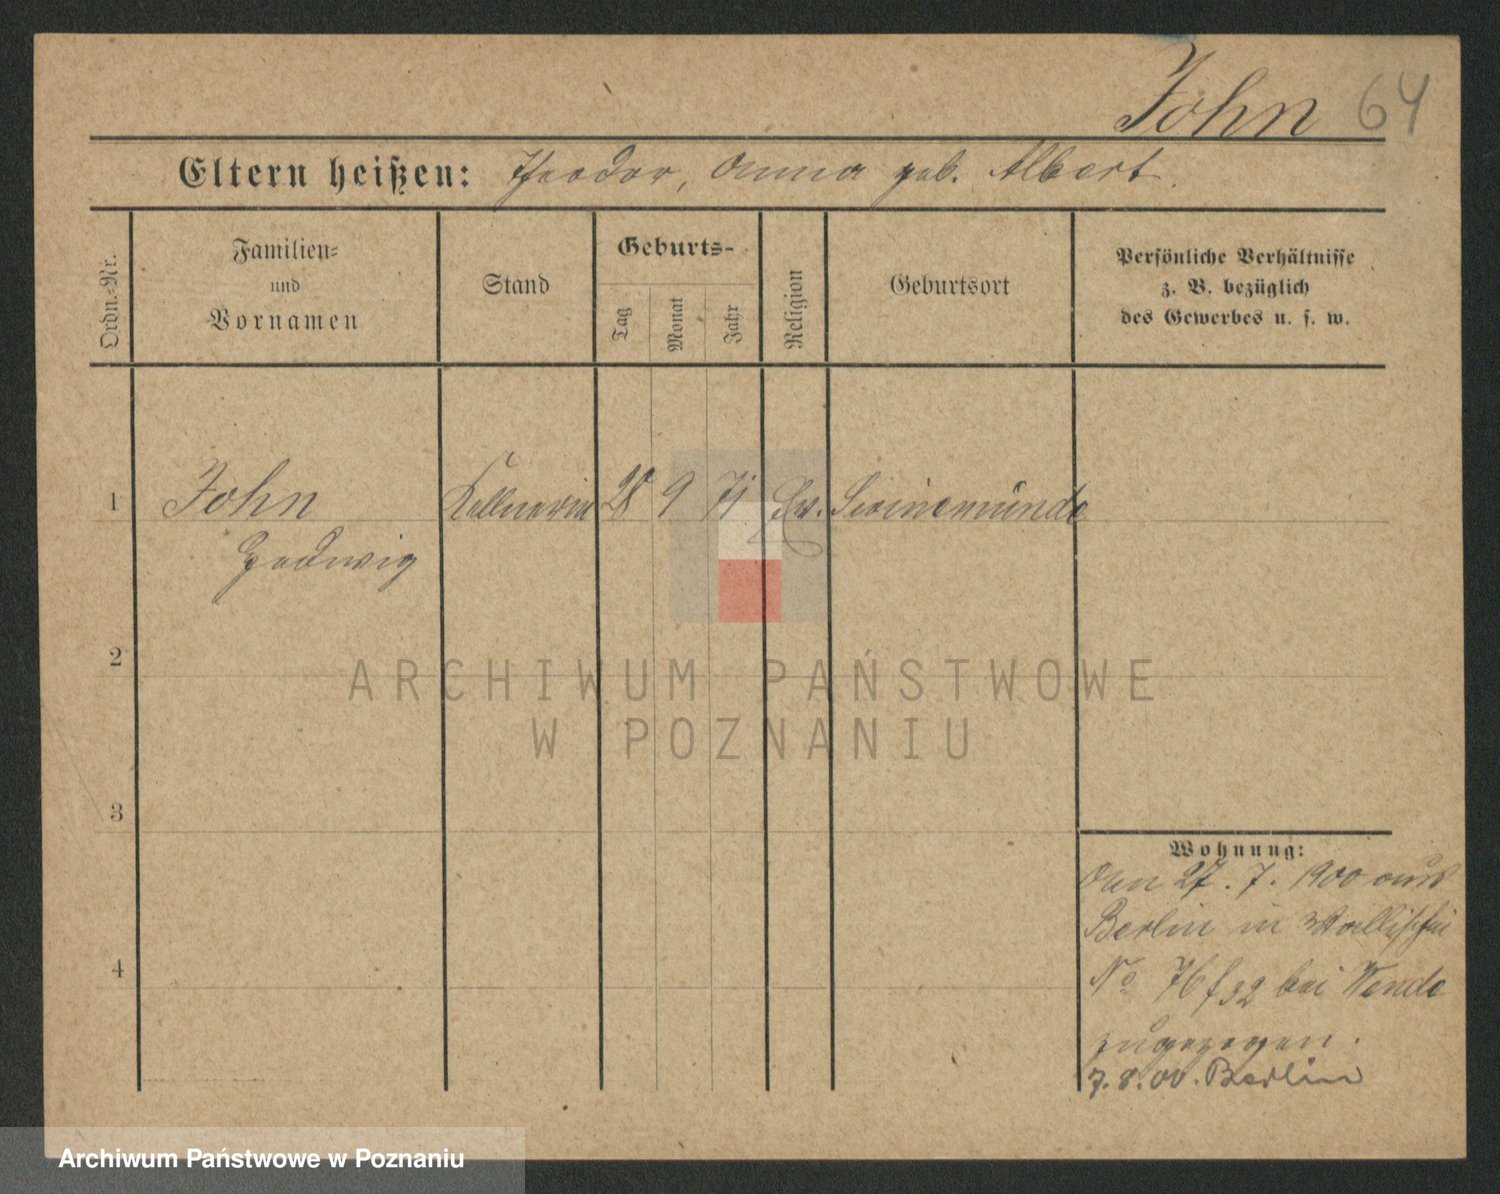 John 64
Eltern heißen: Theodor, Anna geb. Albert.
Ordn.-Nr.
Familien-
und
Vornamen
Stand
Geburts-
Tag
Monat
Jahr
Religion
Geburtsort
Persönliche Verhältnisse
z. B. bezüglich
des Gewerbes u. s. w.
1 John Kellnerin 28 9 71 Ev. Swinemünde
Hedwig
2
ARCHIWUM PAŃSTWOWE
W POZNANIU
3
Wohnung:
Den 27. 7. 1900 aus
Berlin in Wallischei
4
No 76 bei Wende
zugezogen.
7. 8. 00. Berlin
Archiwum Państwowe w Poznaniu